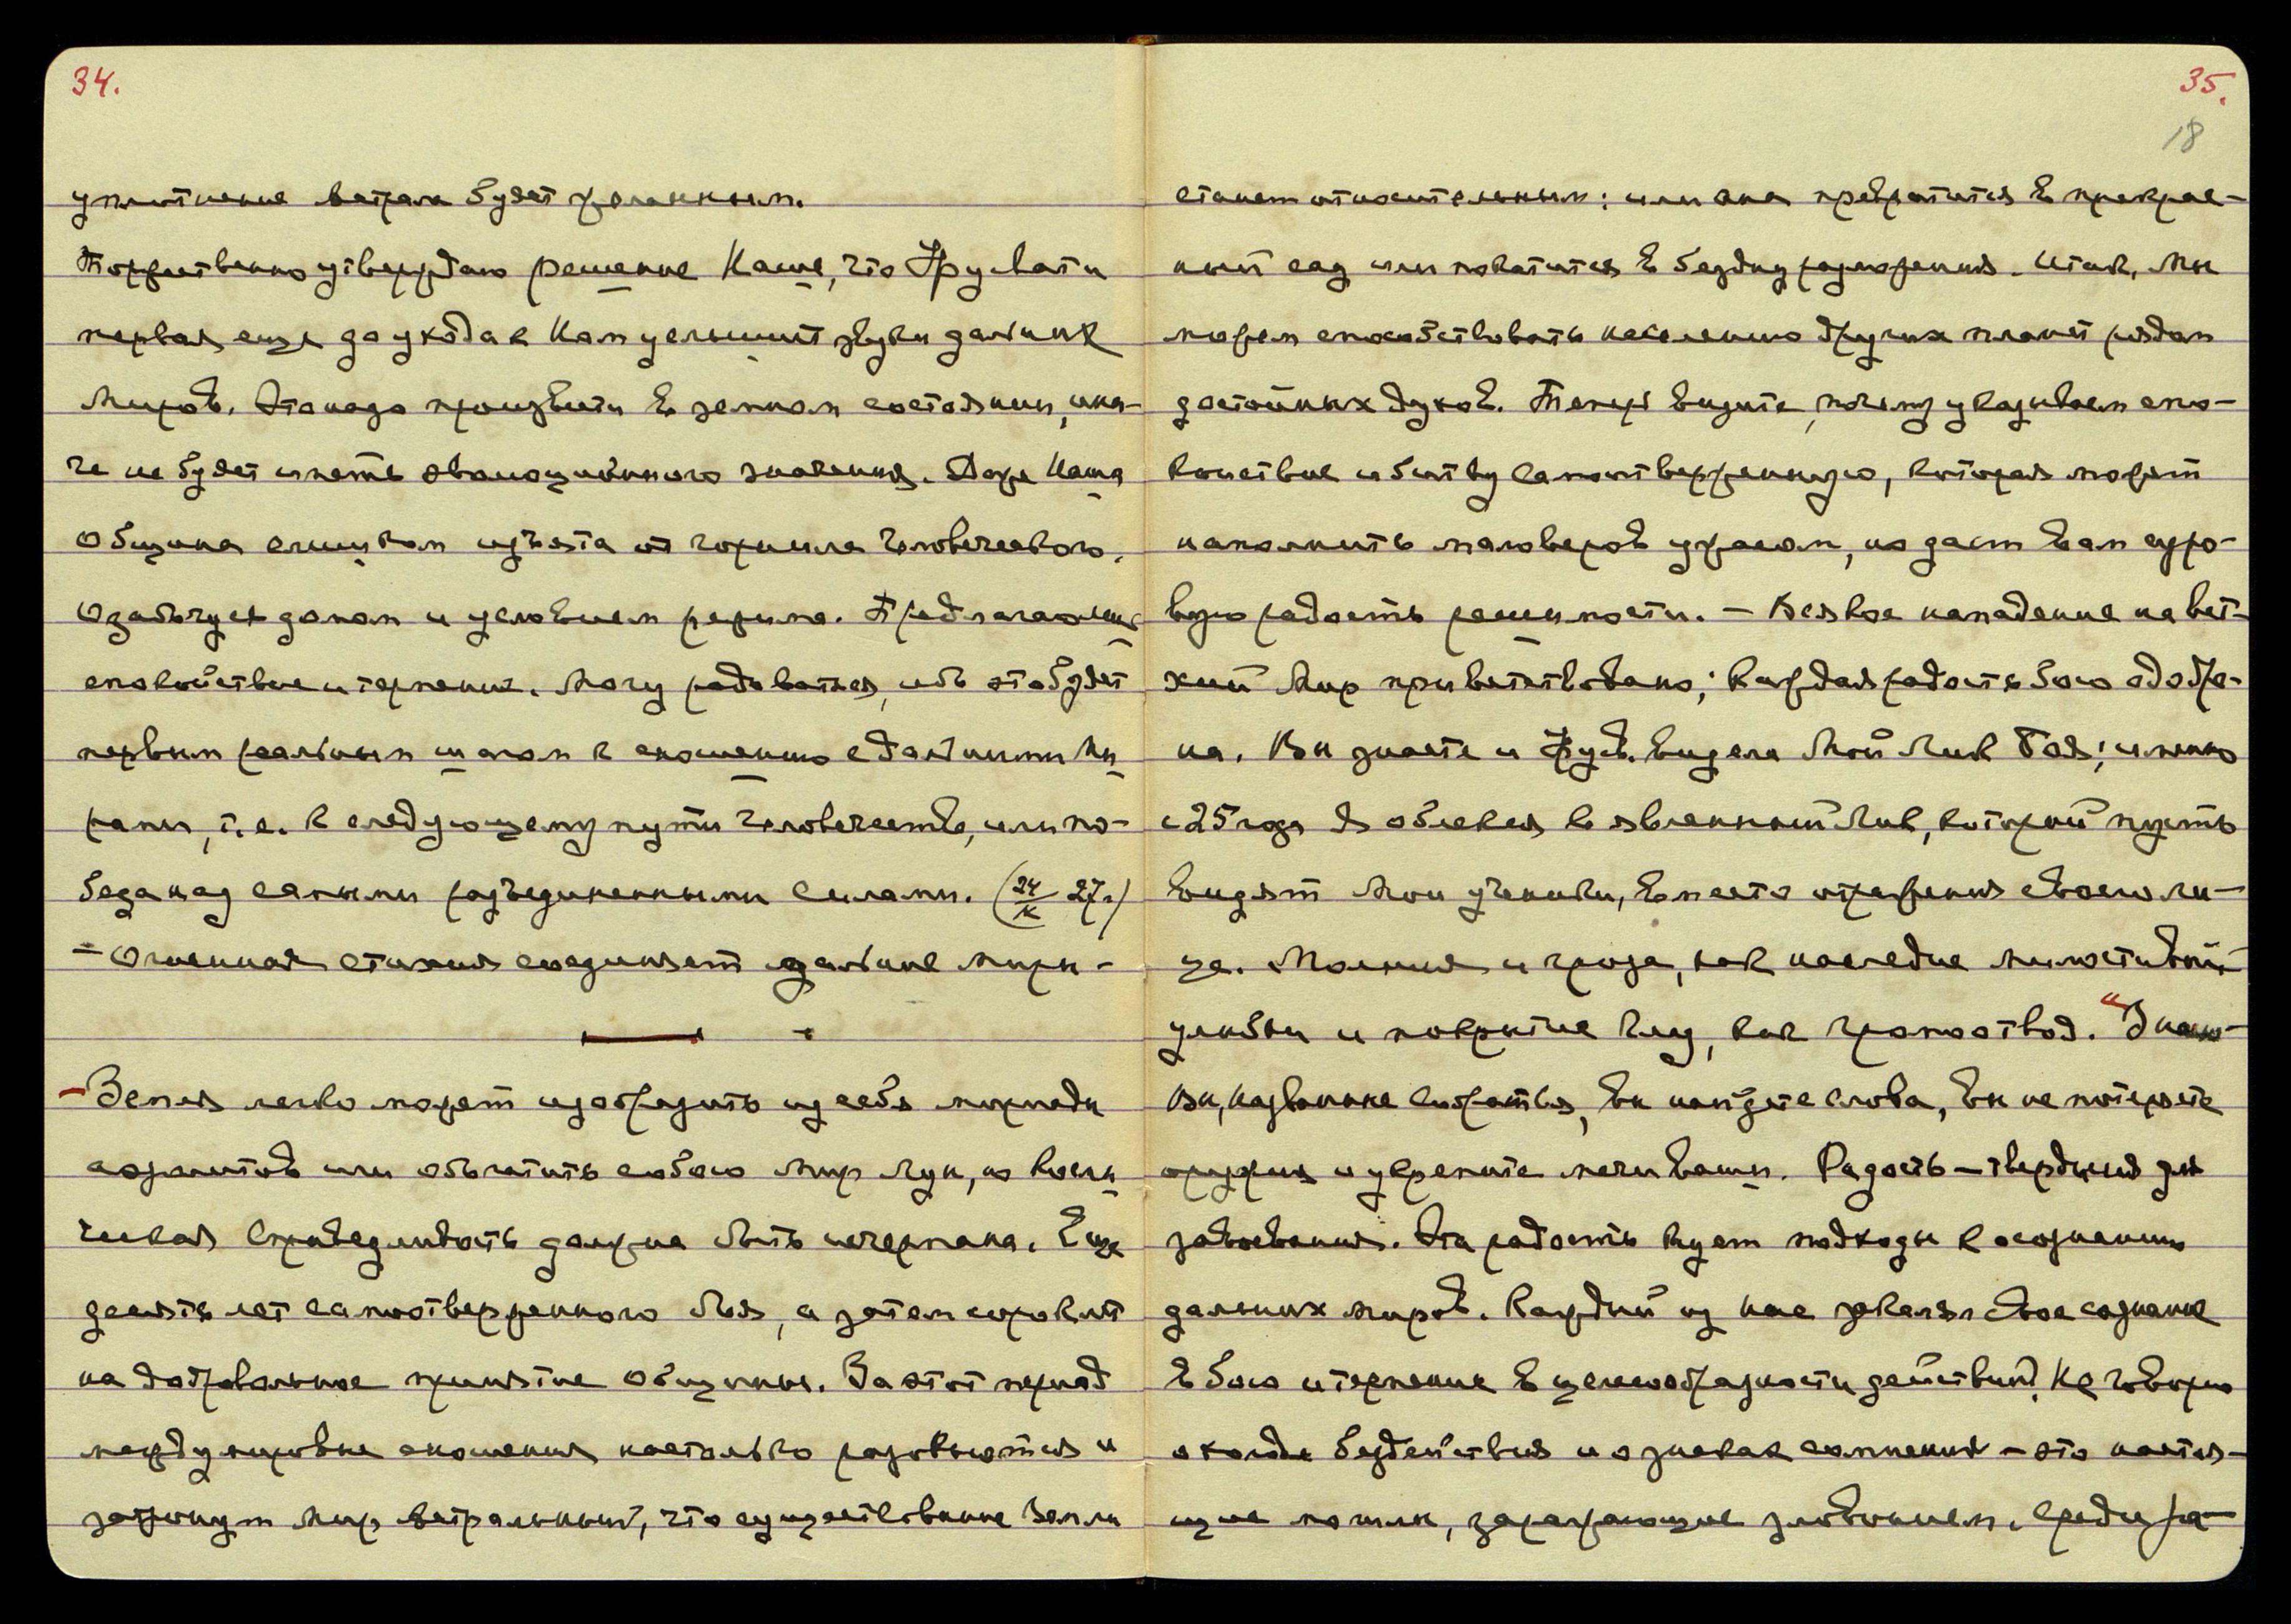 34.
уплотнение астрала будет явленным.
Торжественно утверждаю решение Наше, что Урувати
первая еще до ухода к Нам услышит звуки дальних
Миров. Это надо произвести в земном состоянии, ина-
че не будет иметь эволюционного значения. Даже Наша
Община слишком изъята от горнила человеческого.
Озабочусь домом и условием режима. Предлагаю лишь
спокойствие и терпение. Могу радоваться, ибо это будет
первым реальным шагом к сношению с дальними Ми
рами, т.е. к следующему пути человечества, или по-
беда над самыми разъединенными силами. (24/X 27.)
– Огненная стихия соединяет дальние миры –
– Земля легко может изобразить из себя мириады
аэролитов или обогатить собою Мир Лун, но косми
ческая справедливость должна быть исчерпана. Еще
десять лет самоотверженного боя, а затем сорок лет
на добровольное принятие Общины. За этот период
междумировые сношения настолько разовьются и
затронут Мир астральный, что существование Земли
35.
18
станет относительным: или она превратится в прекрас-
ный сад или покатится в бездну разложения. Итак, Мы
можем способствовать населению других планет рядом
достойных духов. Теперь видите, почему указываем спо-
койствие и битву самоотверженную, которая может
наполнить маловеров ужасом, но даст вам суро-
вую радость решимости. – Всякое нападение на вет-
хий Мир приветствовано; каждая радость бою одобре-
на. Вы знаете и Урув. видела Мой Лик Боя; именно
с 25 года Я облекся в явленный Лик, который пусть
видят Мои ученики, вместо отражения своего ли-
ца. Молния и гроза, как наследие милостивой
улыбки и покрытие глаз, как громоотвод. "Знаю
вы, названные сиобратья, вы найдете слова, вы не потеряете
оружия и укрепите мечи ваши. Радость – твердыня для
завоевания. Эта радость кует подходы к осознанию
дальних миров. Каждый из нас закалял свое сознание
в бою и терпение в целесообразности действий. Не говорю
о холоде бездействия и о знаках сомнения – это настоя-
щие помои, заражающие зловонием. Среди ра-